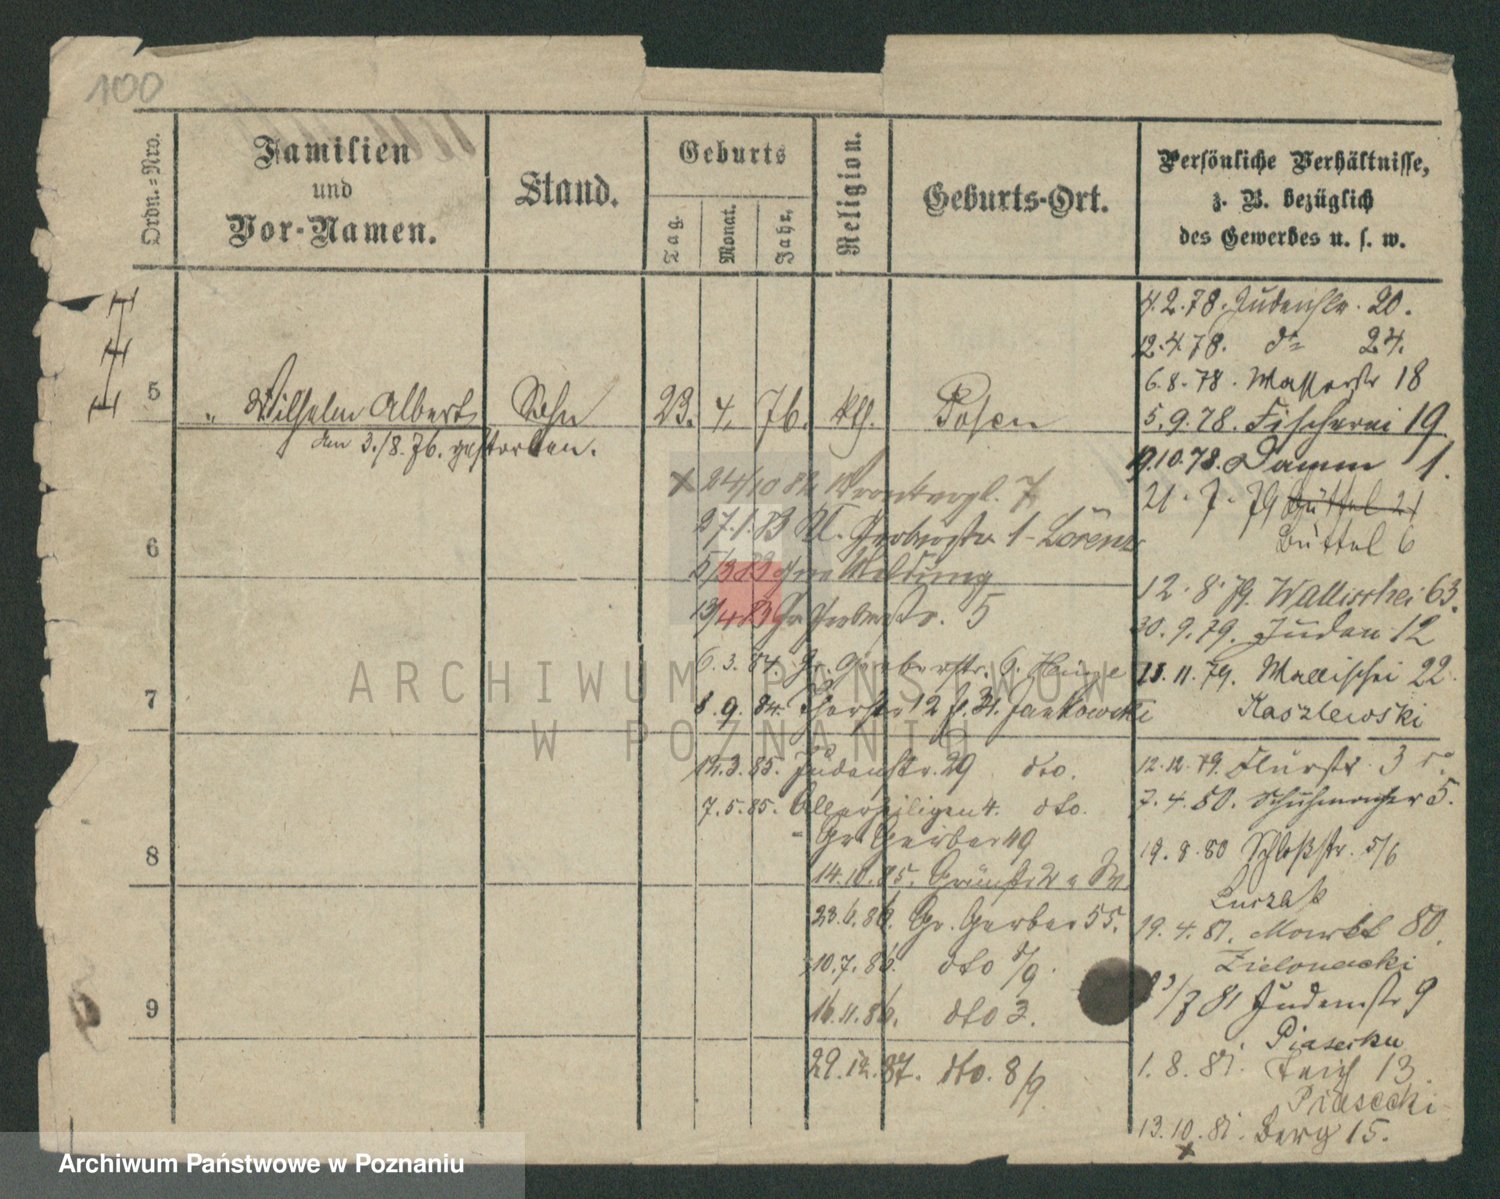 100
Ordn.=Nro.
Familien
und
Vor-Namen.
Stand.
Geburts
Tag.
Monat.
Jahr.
Religion.
Geburts-Ort.
Persönliche Verhältnisse,
z. B. bezüglich
des Gewerbes u. s. w.
5
" Wilhelm Albert Sohn 23. 4. 76. kth. Posen
den 3./8. 76. gestorben.
6
7
8
9
4.2.78. Judenstr. 20.
12.4.78. dto 24.
6.8.78. Wasserstr 18
5.9.78. Fischerei 19
19.10.78. Damm 1.
21.7.79 Büttel 21
Büttel 6
12.8.79. Wallischei 63.
30.9.79. Juden 12
11.79. Wallischei 22.
Kaszlewski
12.12.79. Flurstr 3
7.4.80. Schuhmacher 5.
19.8.80 Schloßstr. 5/6
Luczak
19.4.81. Markt 80.
Zielonacki
81 Judenstr 9
Piasecki
1.8.81. Teich 13
Piasecki
13.10.81. Berg 15.
x
x 24/10 82 Wronkerpl. 7
27.1.83 Kl. Gerberstr. 1 - Lorenz
5/3 83 ohne Meldung
13/4 83 Gr Gerberstr. 5
6.3.84. Gr. Gerberstr. 6.
8.9.84. 12 Jankowski
12.3.85. Judenstr. 29 dto.
7.5.85. Allerheiligen 4. dto.
- Gr. Gerber 49
14.10.85. Grünstr 2
23.6.86. Gr. Gerber 55.
10.7.86. dto 8/9.
16.11.86. dto 3.
29.12.87. dto. 8/9
ARCHIWUM PAŃSTWOWE
W POZNANIU
Archiwum Państwowe w Poznaniu